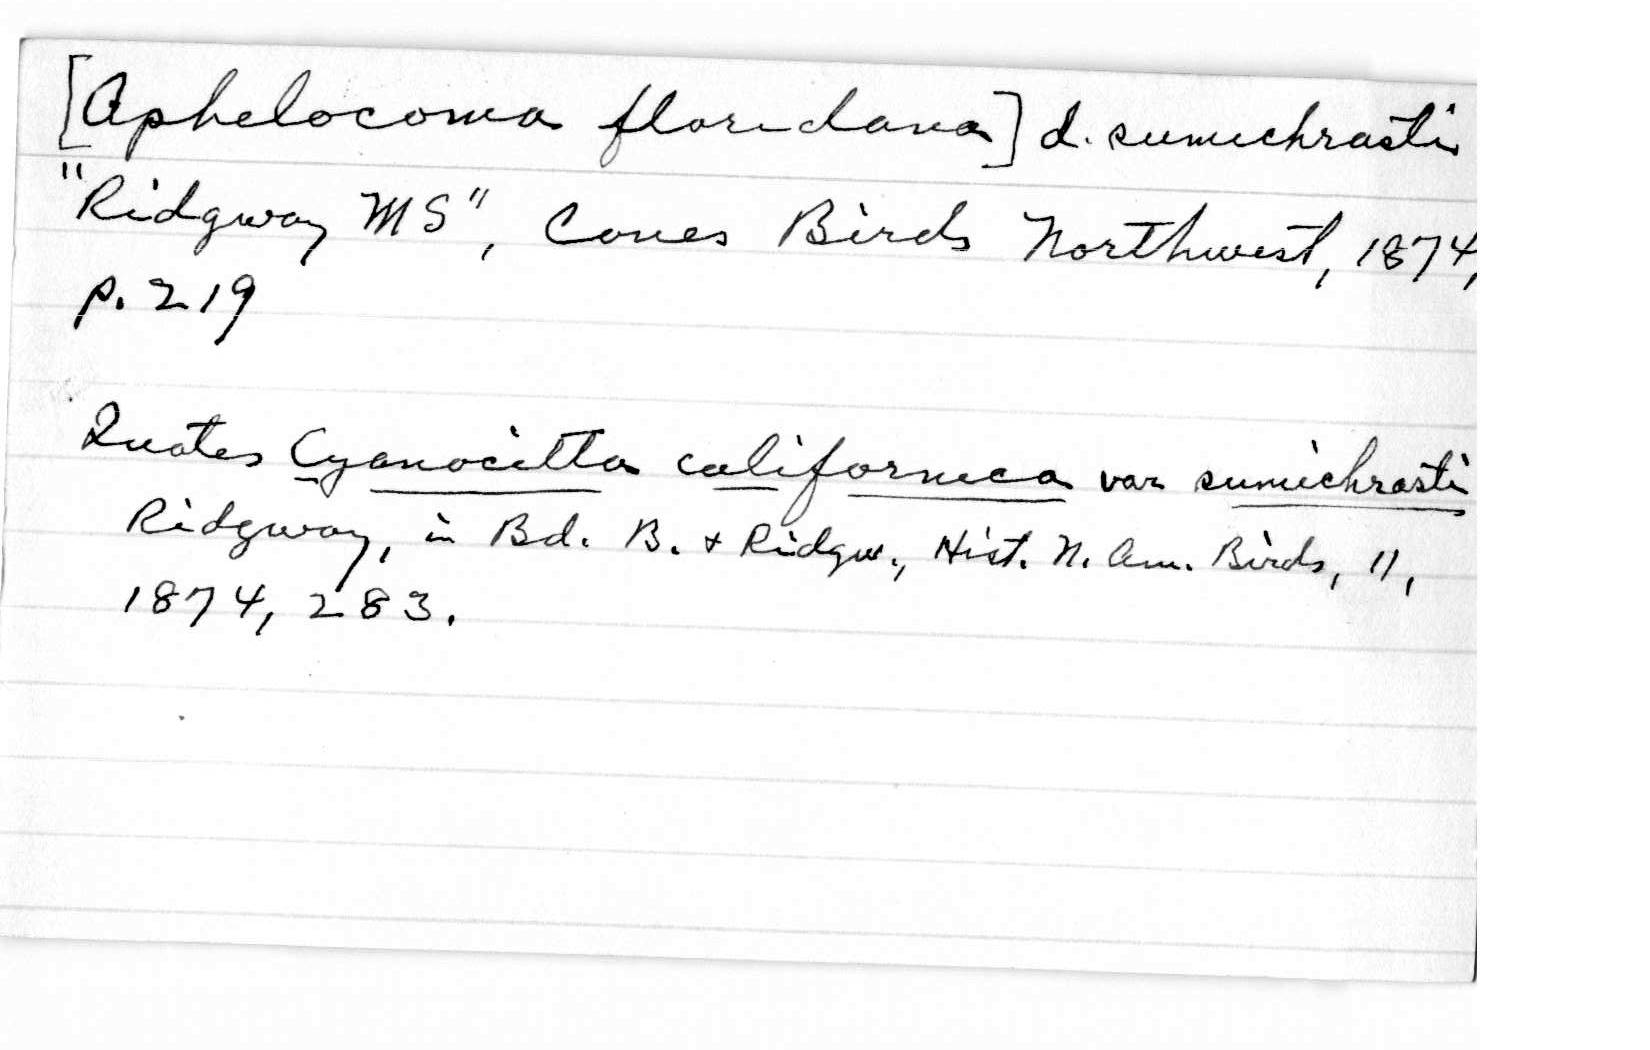 [Aphelocoma floridana] d. sumichrasti
"Ridgway MS", Coues Birds Northwest, 1874,
p. 219
Quotes Cyanocitta californica var sumichrasti
Ridgway, in Bd. B. & Ridgw., Hist. N. Am. Birds, 11,
1874, 283.